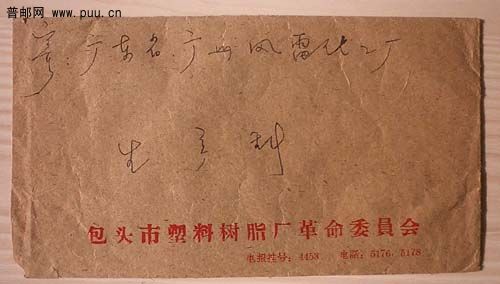 普邮网
www.puu.cn
寄：广东省：广州风雷化工厂
生产科
包头市塑料树脂厂革命委員会
电报挂号：4453 电話：5176、5178